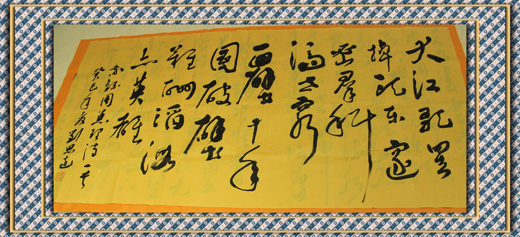 大江歌罷
掉头东邃
密群科
济世穷
面壁十年
圖破壁
难酬蹈海
亦英雄
周总理诗一首
癸巳年夏